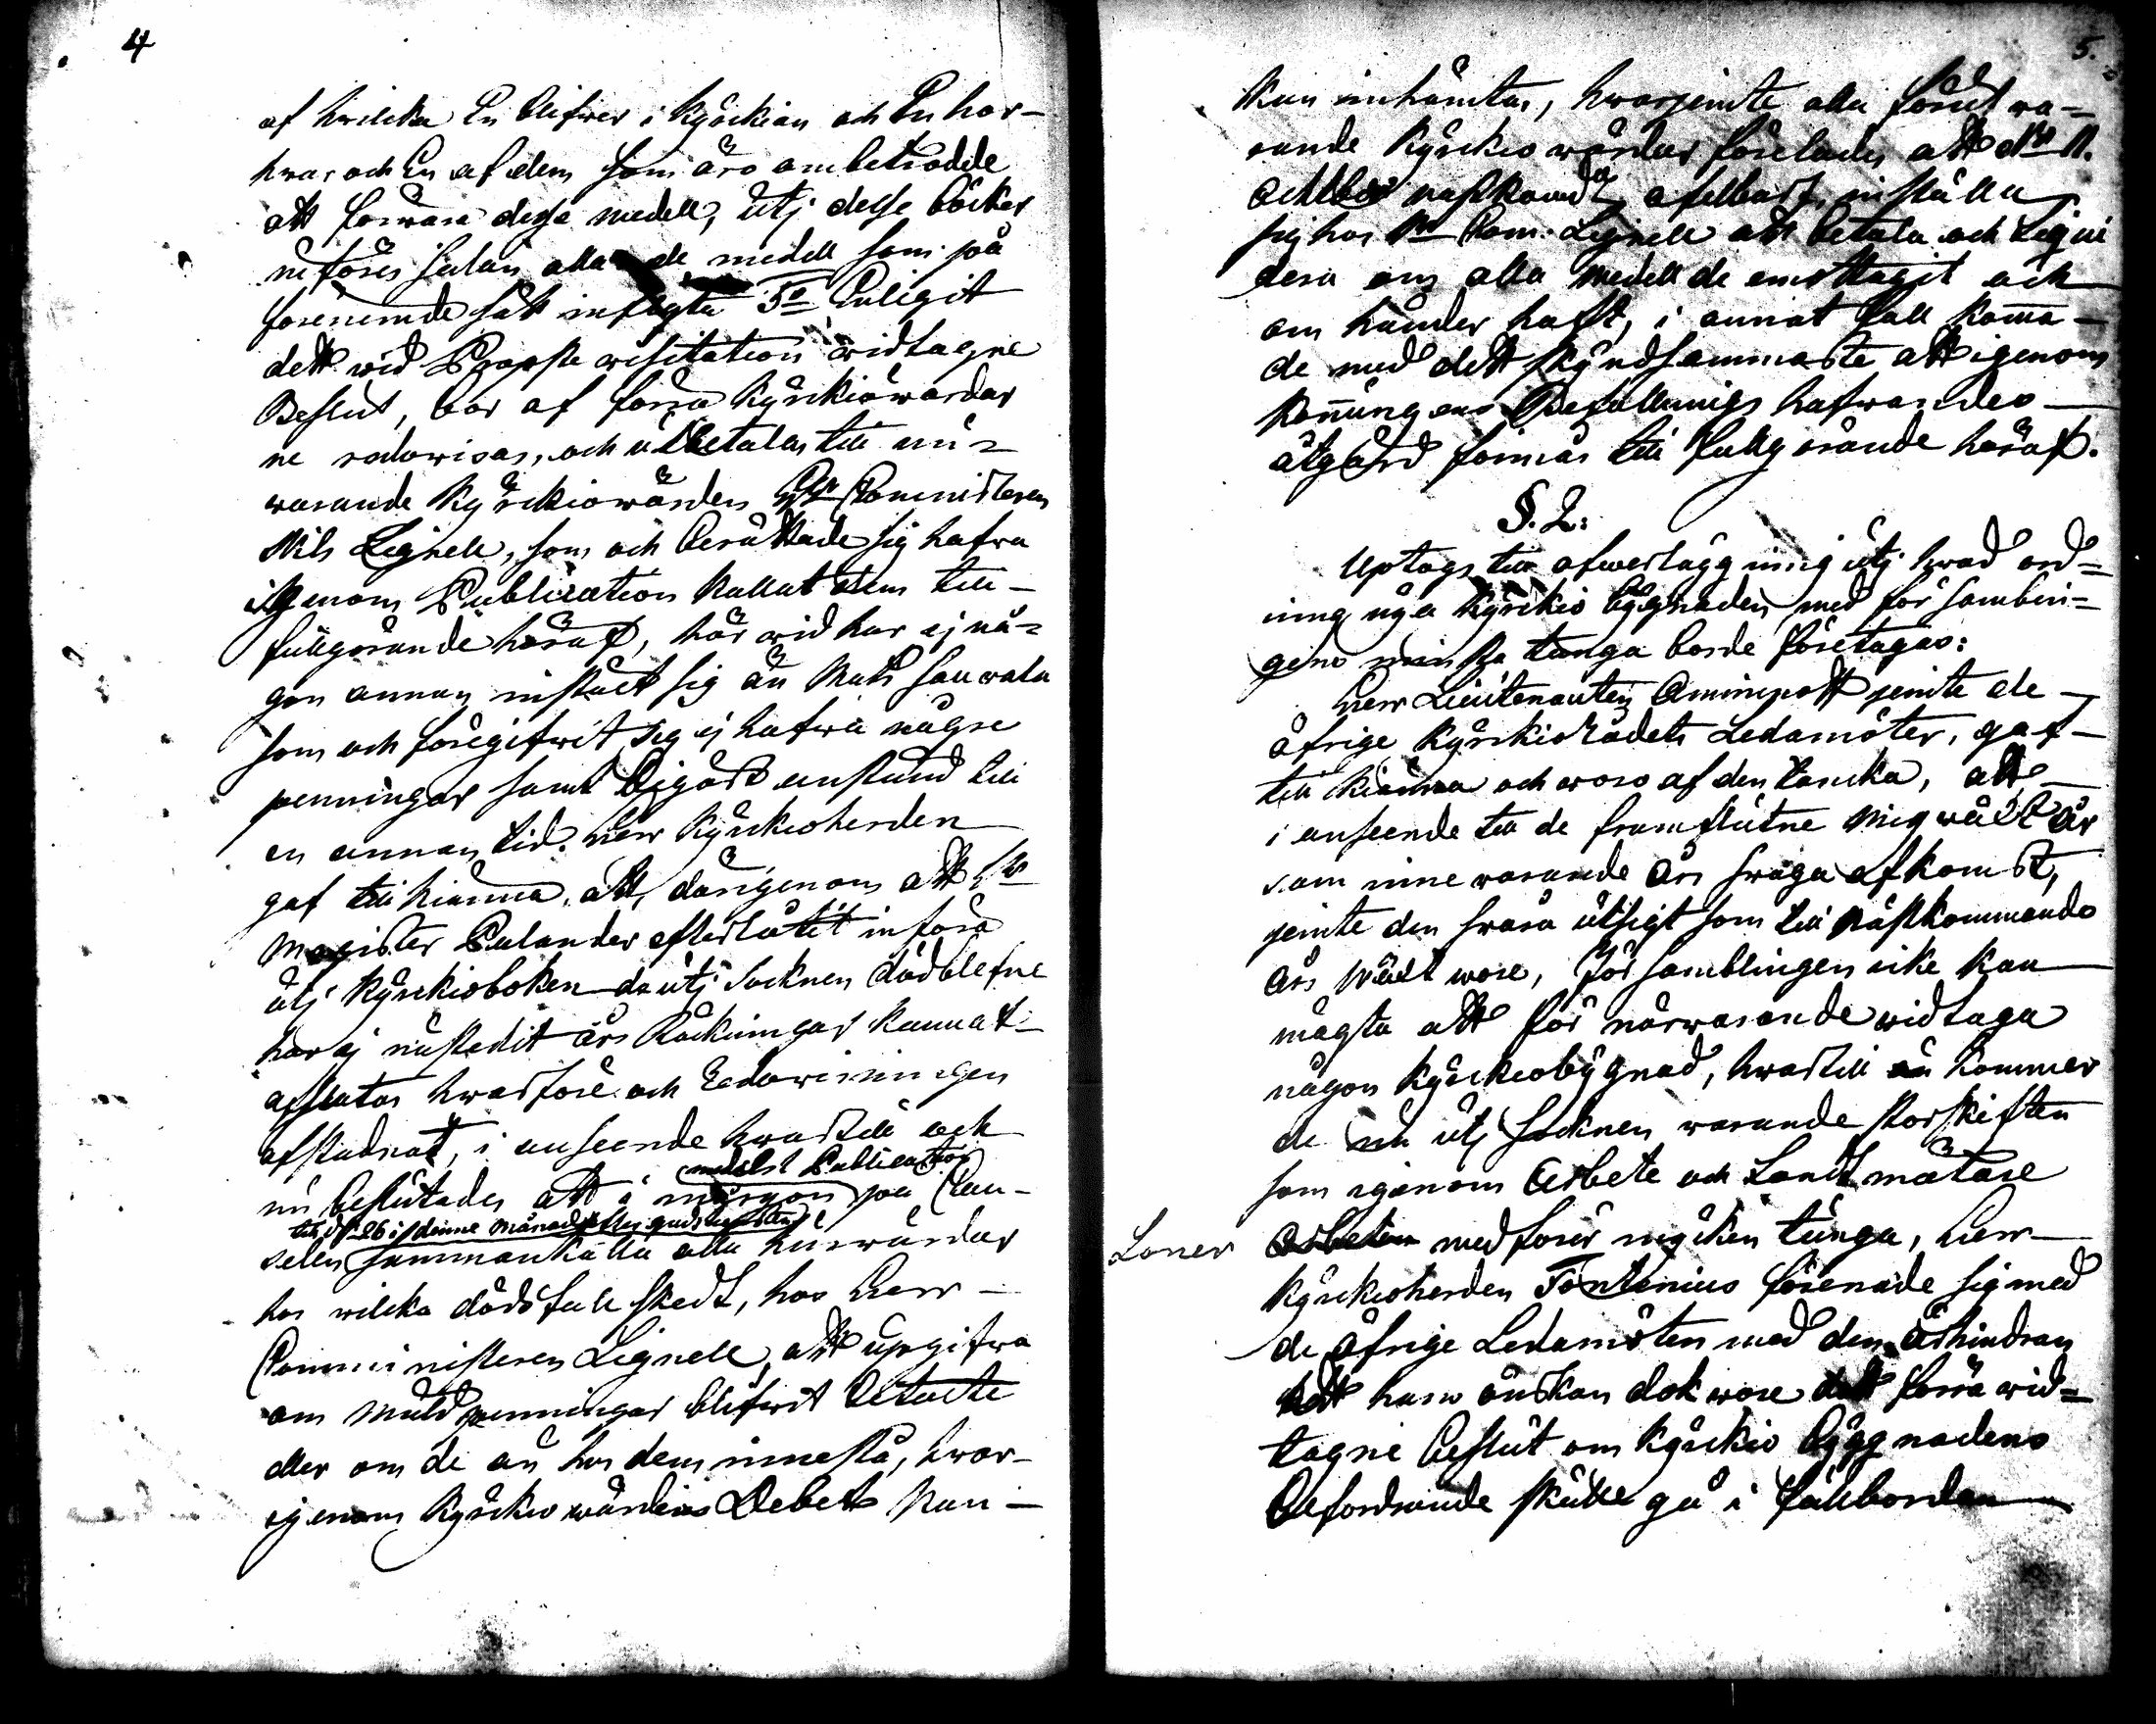 4
af hvilcka En blifwer i Kyrckian och En hos
hvar och En af dem som äro ambetrodde
att förwara dessa medell, utj desse böcker
införes sedan alla de medell som på
förenemde sätt inflyta 5o Enligit
dett wid Prosste wisitation widtagne
Beslut, bör af förra kyrckiowärdar
ne redowisas, och utbetalas till nu=
warande Kyrckiowärden Hr Comministeren
Nils Lignell, som och berättade sig hafwa
igenom Publication kallat dem till
fullgörande häraf, här wid har ej nå=
gon annan instält sig än Mats Sauwala
som och föregifwit sig ej hafwa några
penningar samt begärt anstånd till
en annan tid. Herr Kyrckioherden
gaf till kiänna, att, därigenom att Hr
Magister Eulander efterlåtit införa
utj Kyrckioboken de utj Socknen dödblefne
har ej nästledit års Räckningar kunnat
afslutas hwarföre och Redowisningen
afstadnat, i anseende hwartill och
nu beslutades att i morgon medelst Publication på Can-
till d. 26 i denne Månad efter gudstiensten
selen sammankalla alla huswärdar
hos wilcka dödsfall skedt, hos Herr
Comministeren Lignell, att upgifwa
om Muldpenningar blifwit betalte
eller om de än hos dem innestå, hwar-
igenom Kyrckiowärdens Debet kan
5.
kan inhämtas, hwarjemte alla förut wa-
rande Kyrckiowärdar förelades att d. 11.
Octbr nästkommande ofelbart, inställa
sig hos Hr Com. Lignell att betala och Liqui
dera om alla medell de emottagit och
om händer haft, i annat fall komma
de med dett skyndsammaste att igenom
Konungens Befallnings hafwandes
åtgärd förmås till fullgörande häraf.
§. 2:
Uptogs till öfwerläggning utj hwad ord=
ning nya Kyrckio byggnaden med församblin=
gens minsta tunga borde företagas:
Herr Lieutenanten Aminnoff jemte de
öfrige KyrckioRådets Ledamöter, gaf
till kiänna och woro af den tancka, att
i anseende till de framflutne Miswäxt år
som innewarande års swaga afkomst,
jemte den swåra utsigt som till nästkommande
års Wäxt wore, Församblingen icke kan
mägta att för närwarande widtaga
någon Kyrckiobygnad, hwartill än kommer
de nu utj Socknen warande storskiften
som igenom Arbete och Landtmätare
Löner Arbeten medförer mycken tunga, Herr
Kyrckioherden Fontenius förenade sig med
de öfrige Ledamöten med den åthindran
att hans önskan dok wore att förra wid=
tagne beslut om Kyrckio byggnadens
befordrande skulle gå i fullbordan